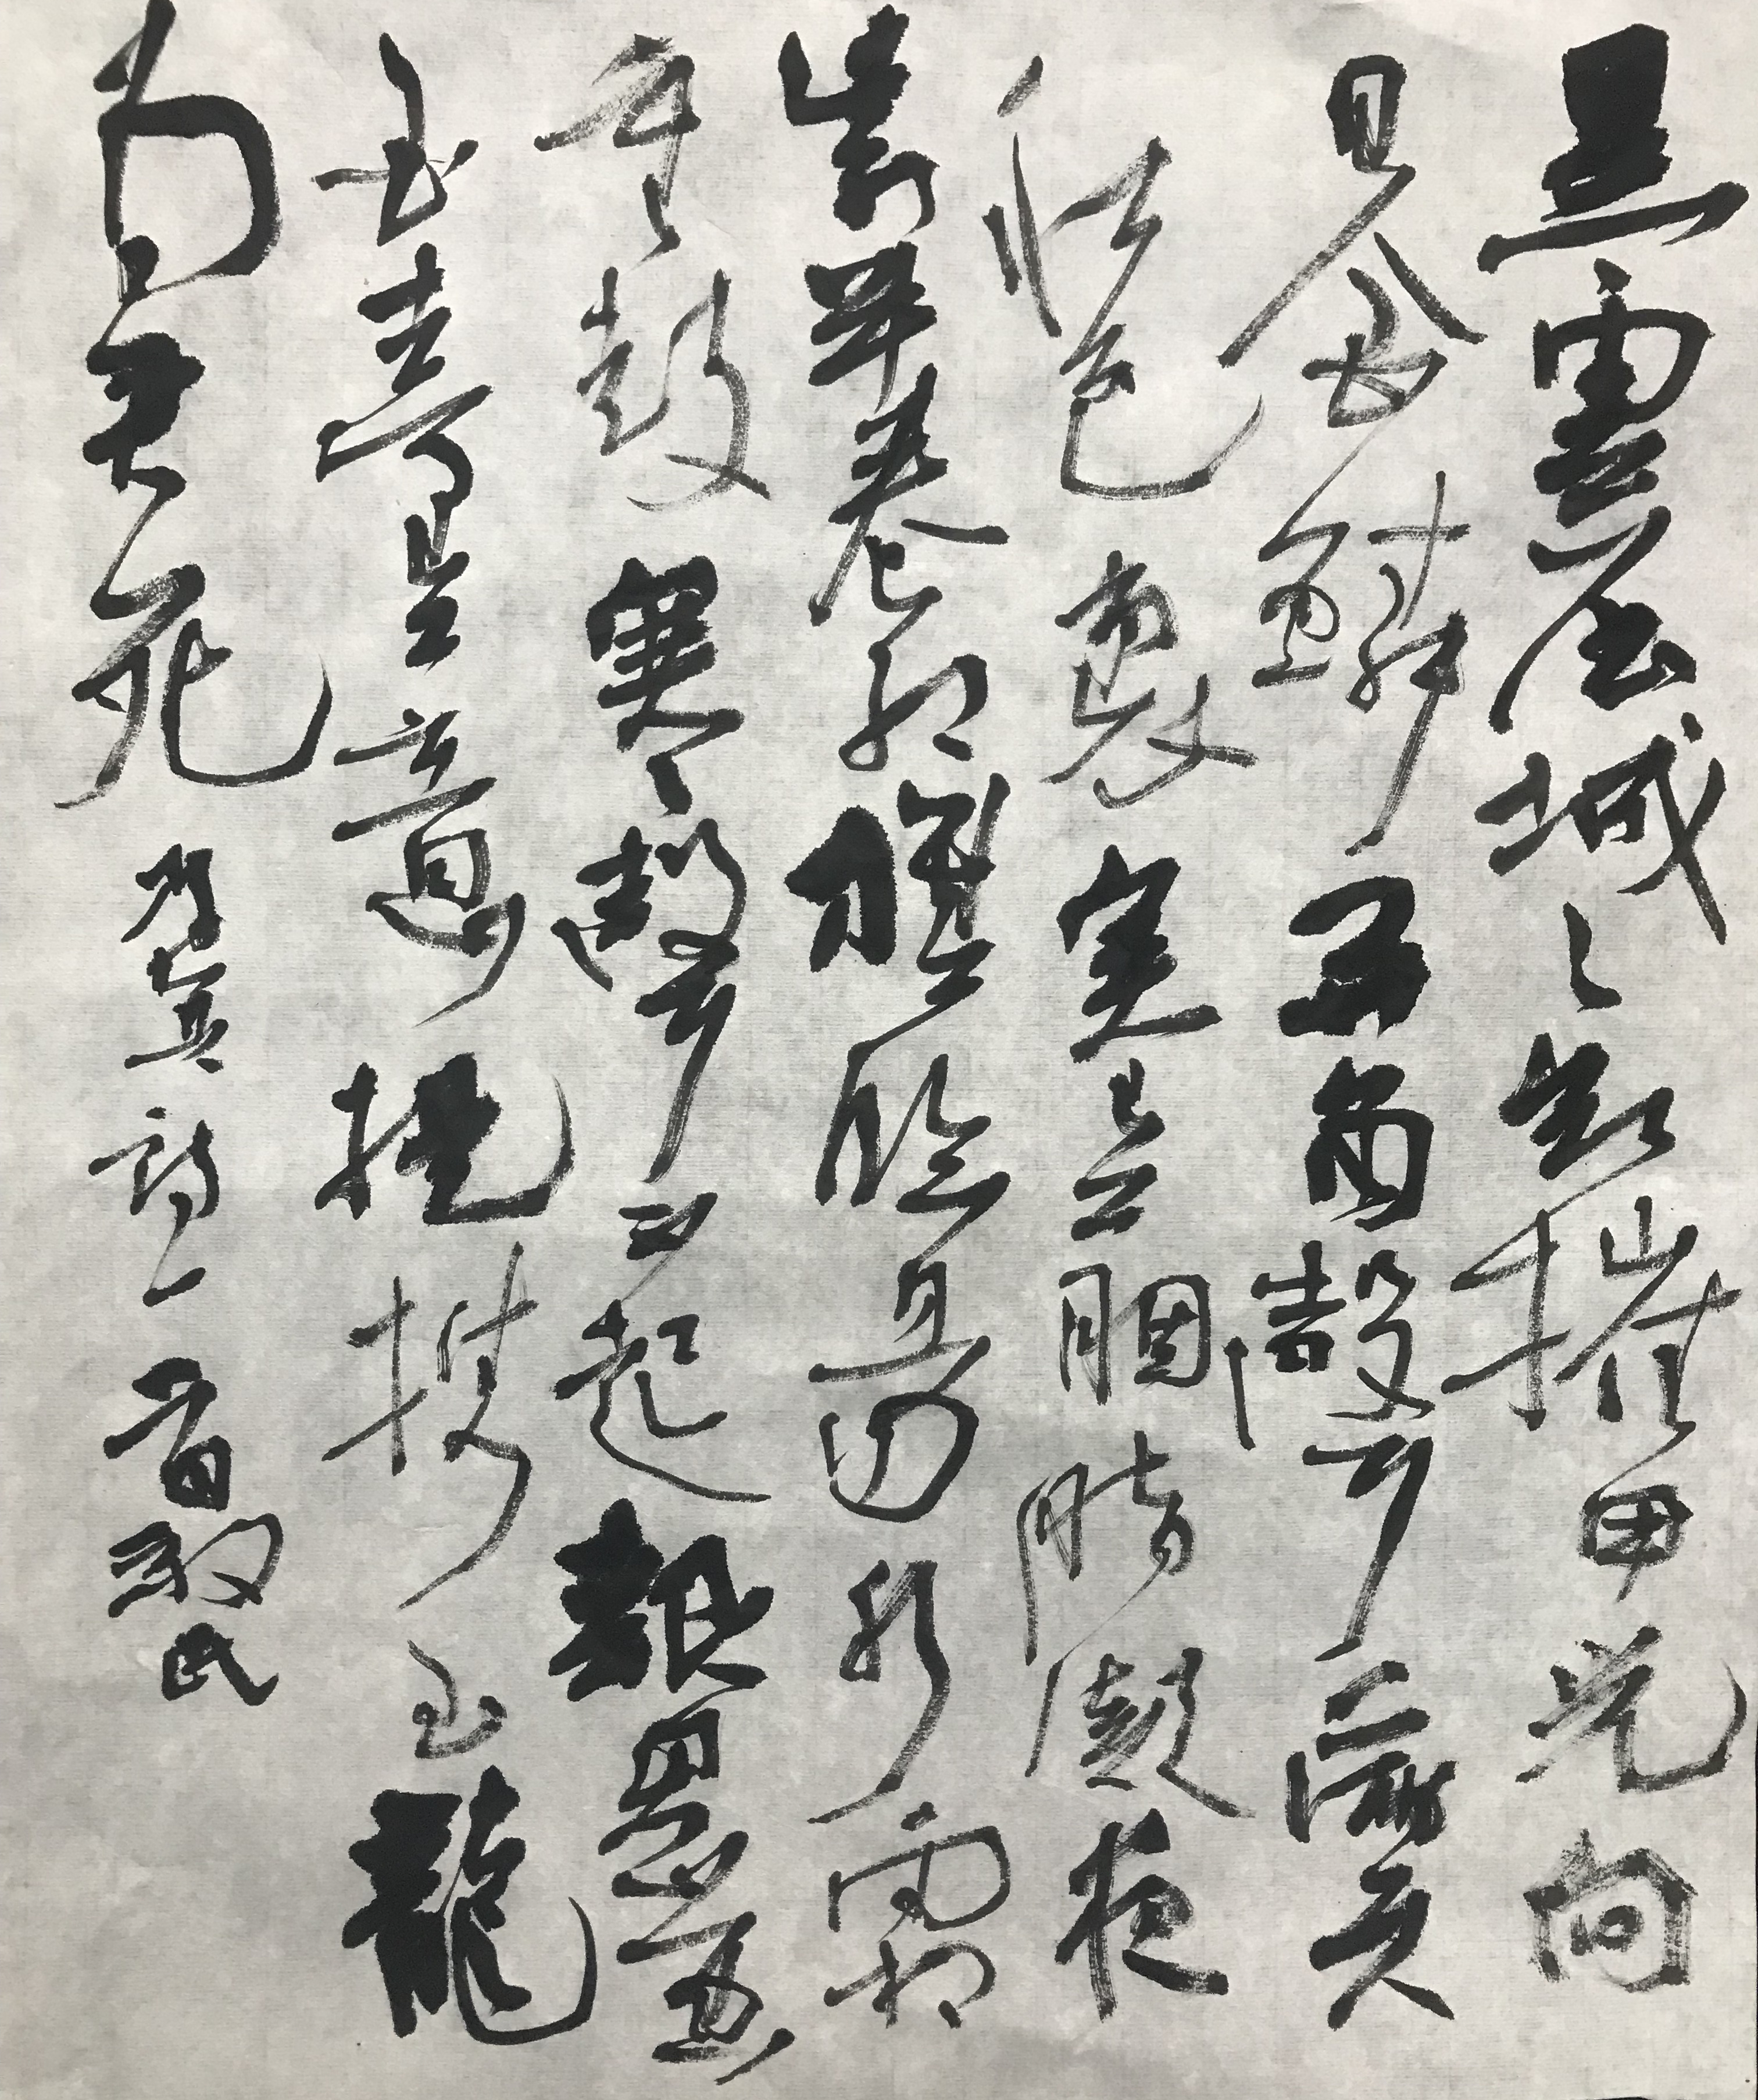 黑雲壓城々欲摧甲光向
日金鱗開角聲滿天
秋色裏塞上胭脂凝夜
紫半卷紅旗臨易水霜
重鼓寒聲不起報黃
金臺上意提攜玉龍
為君死 賀詩一首 敬民